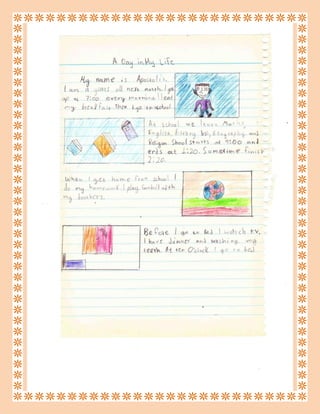 A Day in My Life
My name is
I am years old next month. I get
up at 7:00 every morning I eat
my breakfast then I go to school
At school we learn Maths,
English, History, Geography and
Religon School starts at 9:00 and
ends at 2:20. Sometime finish
2:20.
When I get home from school I
do my homework I play football with
my brothers.
Before I go to bed I watch t.v,
I have dinner and
teeth. At ten O'clock I go to bed